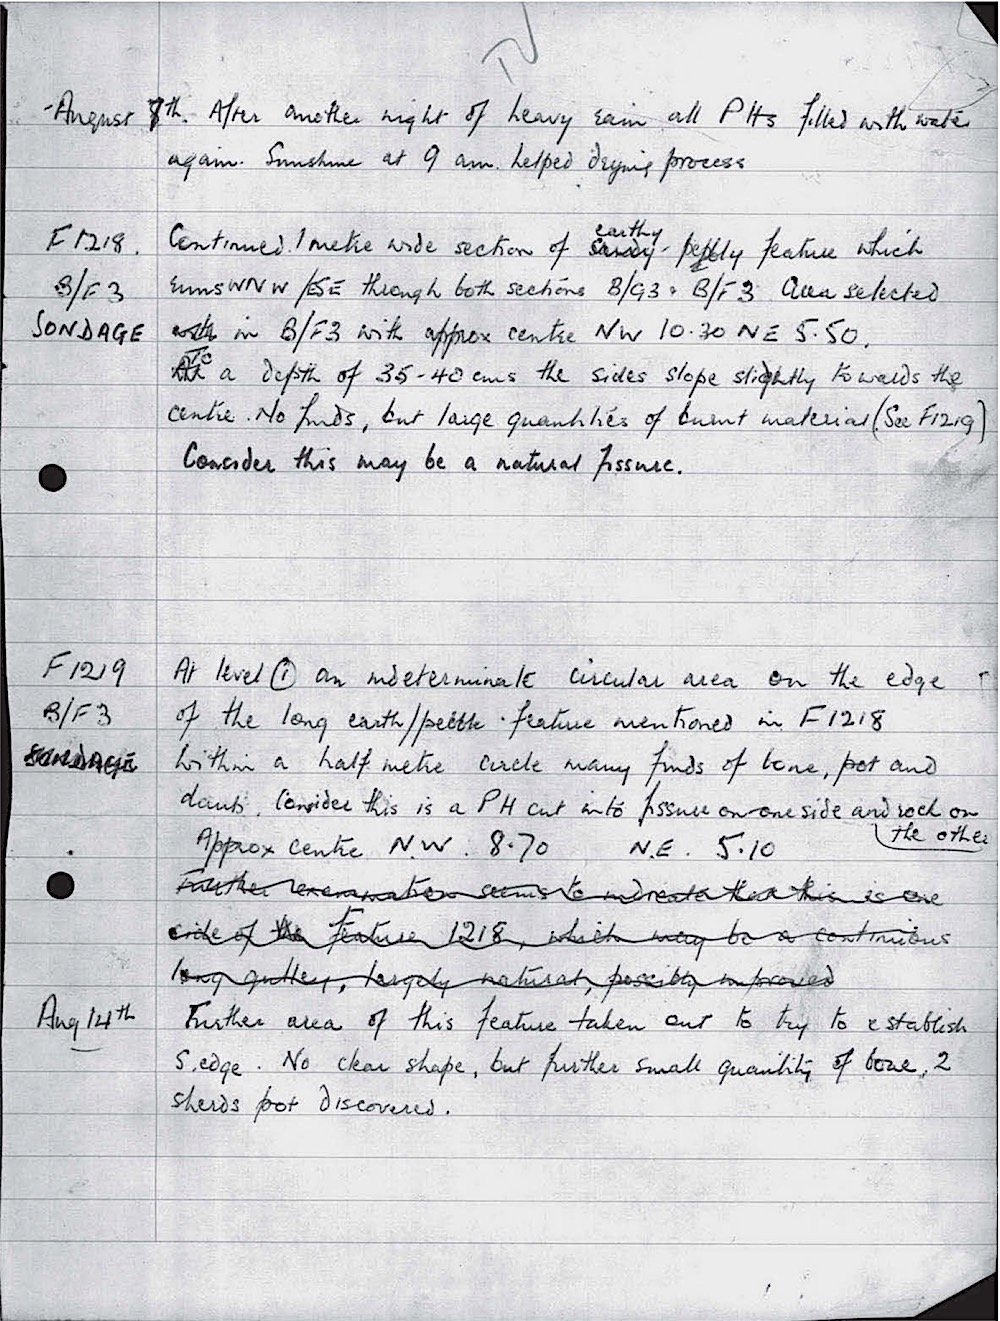 August 8th. After another night of heavy rain all PHs filled with water
again. Sunshine at 9 am. helped drying process
F1218. Continued. 1 metre wide section of sandy earthy - pebbly feature which
B/F3 runs WNW/ESE through both sections B/G3 & B/F3 Area selected
SONDAGE in B/F3 with approx centre NW 10.30 NE 5.50.
To a depth of 35-40 cms the sides slope slightly towards the
centre. No finds, but large quantities of burnt material (See F1219)
Consider this may be a natural fissure.
F1219 At level ① an indeterminate circular area on the edge
B/F3 of the long earth/pebble feature mentioned in F1218
SONDAGE Within a half metre circle many finds of bone, pot and
daub. Consider this is a PH cut into fissure on one side and rock on
the other
Approx centre N.W. 8.70 N.E. 5.10
Further examination seems to indicate that this is one
side of the Feature 1218, which may be a continuous
long gulley, largely natural, possibly improved
Aug 14th Further area of this feature taken out to try to establish
S. edge. No clear shape, but further small quantity of bone, 2
sherds pot discovered.